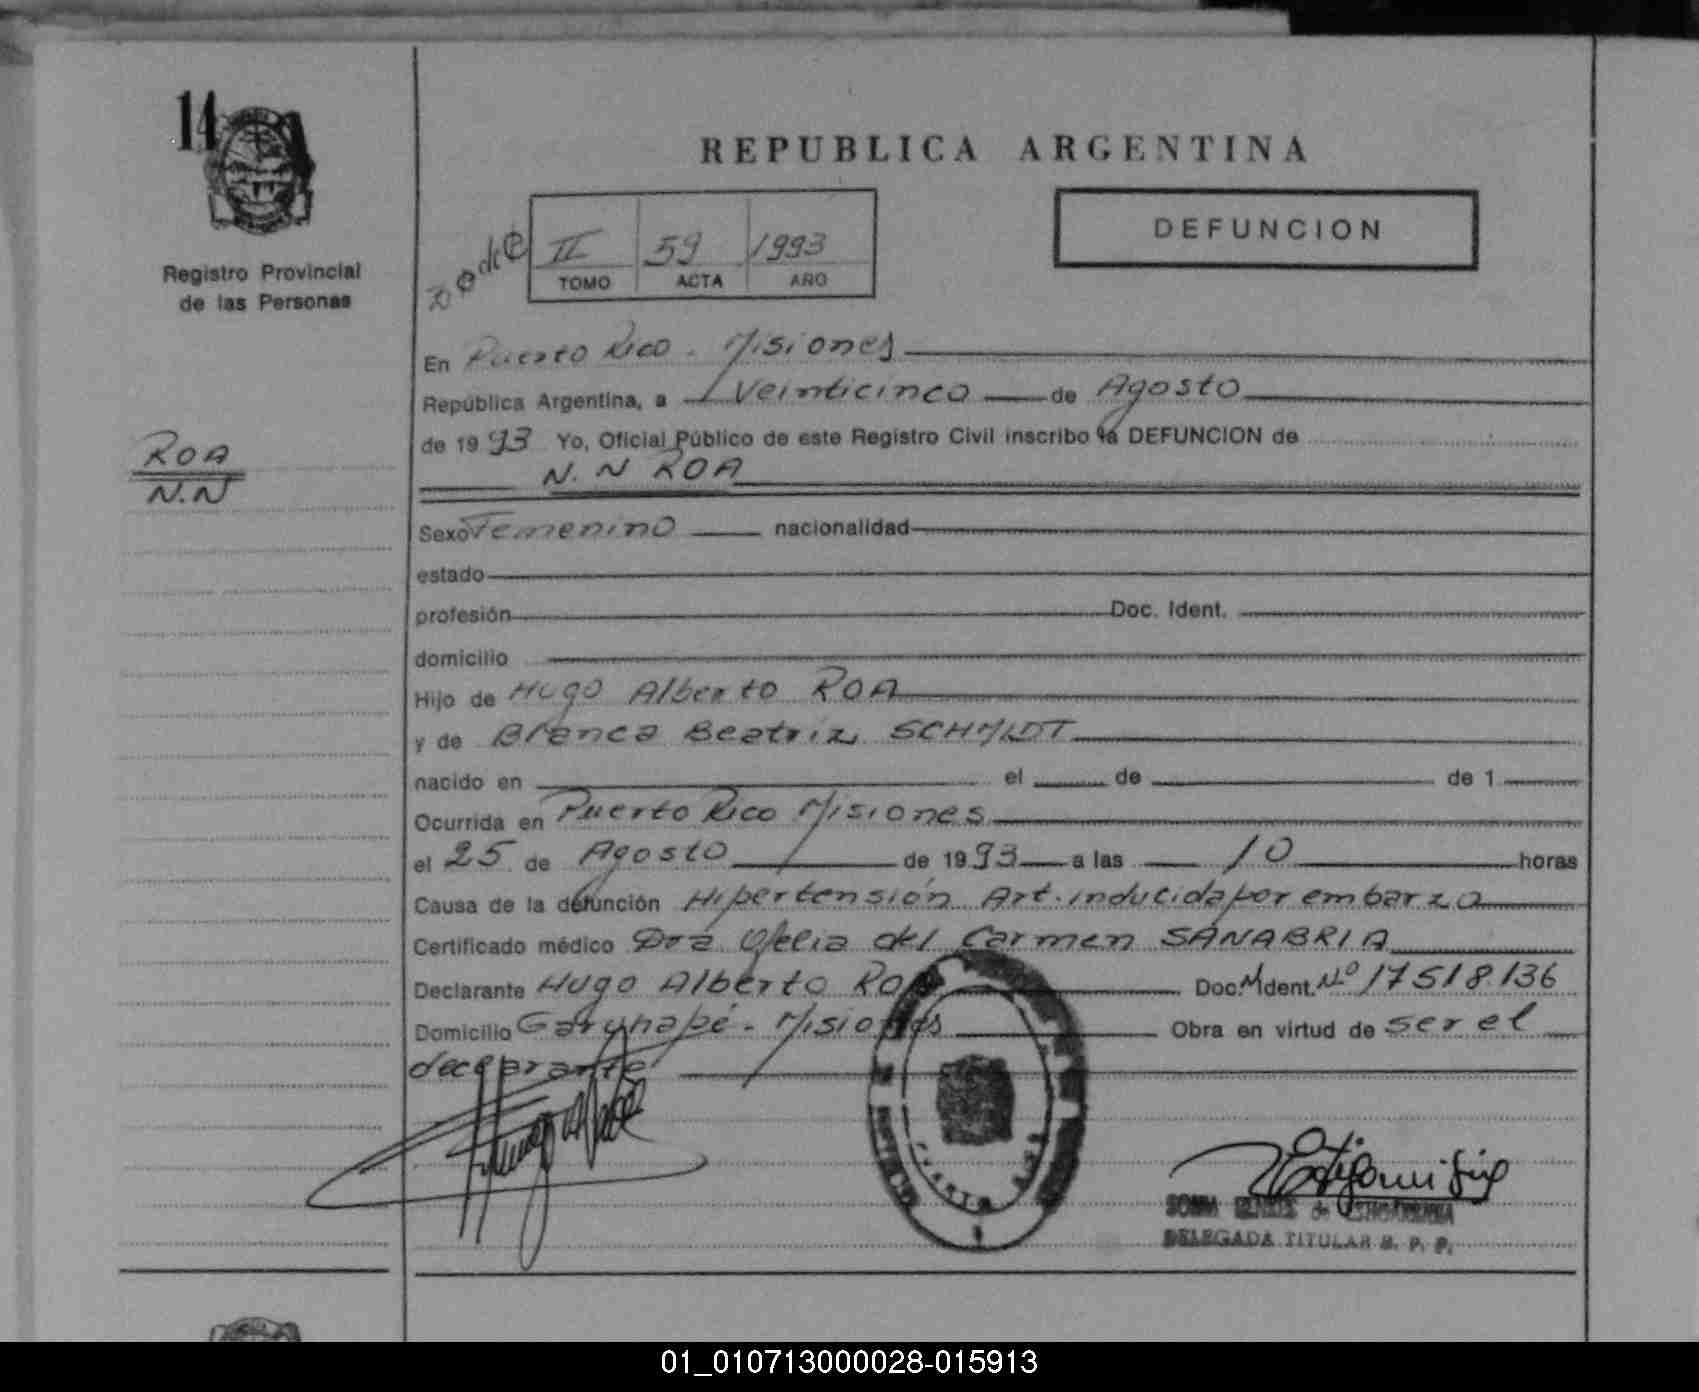 14
REPUBLICA ARGENTINA
DEFUNCION
II 59 1993
TOMO ACTA AÑO
Registro Provincial
de las Personas
En Puerto Rico - Misiones
República Argentina, a Veinticinco de Agosto
de 1993 Yo, Oficial Público de este Registro Civil inscribo la DEFUNCION de
ROA
N.N
N.N ROA
Sexo Femenino nacionalidad
estado
profesión Doc. Ident.
domicilio
Hijo de Hugo Alberto ROA
y de Blanca Beatriz SCHMIDT
nacido en el de de 1
Ocurrida en Puerto Rico Misiones
el 25 de Agosto de 1993 a las 10 horas
Causa de la defunción Hipertensión Art. inducida por embarzo
Certificado médico Dra Ofelia del Carmen SANABRIA
Declarante Hugo Alberto ROA Doc. M Ident. Nº 17518.136
Domicilio Garuhapé - Misiones Obra en virtud de ser el
declarante
DELEGADA TITULAR R. P. P.
01_010713000028-015913